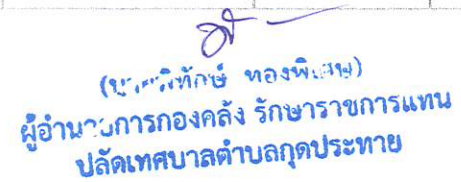 ทองพิเศษ)
ผู้อำนวยการกองคลัง รักษาราชการแทน
ปลัดเทศบาลตำบลกุดประทาย